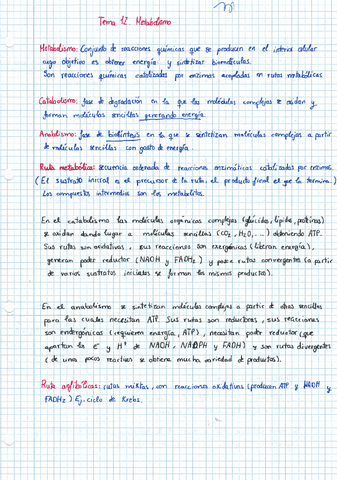 Tema 12. Metabolismo
Metabolismo: Conjunto de reacciones químicas que se producen en el interior celular
cuyo objetivo es obtener energía y sintetizar biomoléculas.
Son reacciones químicas catalizadas por enzimas acopladas en rutas metabólicas
Catabolismo: fase de degradación en la que las moléculas complejas se oxidan y
forman moléculas sencillas generando energía.
Anabolismo: fase de biosíntesis en la que se sintetizan moléculas complejas a partir
de moléculas sencillas con gasto de energía.
Ruta metabólica: secuencia ordenada de reacciones enzimáticas catalizadas por enzimas.
(El sustrato inicial o el precursor de la ruta el producto final el que la termina.)
Los compuestos intermedios son los metabolitos.
En el catabolismo las moléculas orgánicas complejas (glúcido, lípido, proteínas)
se oxidan dando lugar a moléculas sencillas (CO2, H2O, ...) obteniendo ATP.
Sus rutas son oxidativas, sus reacciones son exergónicas (liberan energía),
generan poder reductor (NADH y FADH2) y posee rutas convergentes (a partir
de varios sustratos iniciales se forman los mismos productos).
En el anabolismo se sintetizan moléculas complejas a partir de otras sencillas
para las cuales necesitan ATP. Sus rutas son reductoras, sus reacciones
son endergónicas (requieren energía, ATP), necesitan poder reductor (que
aportan la e- y H+ de NADH, NADPH y FADH) y son rutas divergentes
(de unos pocos reactivos se obtiene mucha variedad de productos).
Ruta anfibólicas: rutas mixtas, con reacciones oxidativas (producen ATP y NADH y
FADH2) Ej. ciclo de Krebs.